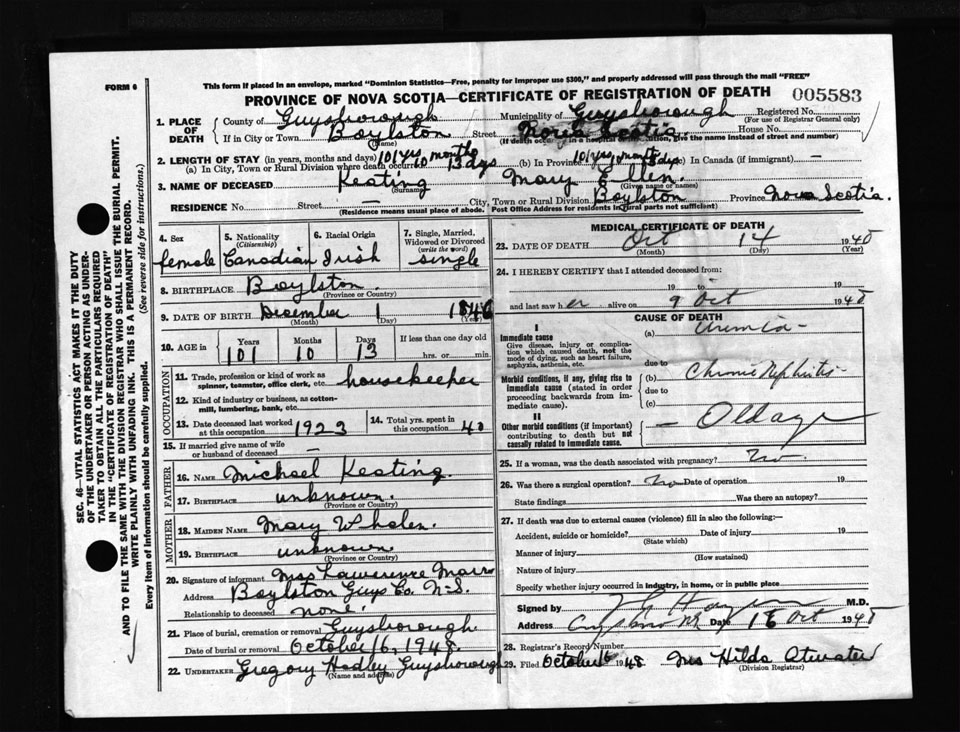 FORM 6
This form if placed in an envelope, marked "Dominion Statistics—Free, penalty for improper use $300," and properly addressed will pass through the mail "FREE"
PROVINCE OF NOVA SCOTIA—CERTIFICATE OF REGISTRATION OF DEATH 005583
1. PLACE OF DEATH County of Guysborough Municipality of Guysborough Registered No.
(For use of Registrar General only)
If in City or Town Boylston Street Nova Scotia House No.
(Name) (If death occurred in a hospital or institution, give the name instead of street and number)
2. LENGTH OF STAY (in years, months and days)
(a) In City, Town or Rural Division where death occurred 101 yrs 10 months 13 dys (b) In Province 101 yrs months dys (c) In Canada (if immigrant) —
3. NAME OF DECEASED Keating Mary Ellen
(Surname) (Given name or names)
RESIDENCE No. Street — City, Town or Rural Division Boylston Province Nova Scotia.
(Residence means usual place of abode. Post Office Address for residents in rural parts not sufficient)
4. Sex female
5. Nationality (Citizenship) Canadian
6. Racial Origin Irish
7. Single, Married, Widowed or Divorced (write the word) single
8. BIRTHPLACE Boylston.
(Province or Country)
9. DATE OF BIRTH December 1 1846
(Month) (Day) (Year)
10. AGE in Years 101 Months 10 Days 13 If less than one day old hrs. or min.
OCCUPATION
11. Trade, profession or kind of work as spinner, teamster, office clerk, etc. housekeeper
12. Kind of industry or business, as cotton-mill, lumbering, bank, etc.
13. Date deceased last worked at this occupation 1923
14. Total yrs. spent in this occupation 40
15. If married give name of wife or husband of deceased —
FATHER
16. Name Michael Keating.
17. Birthplace unknown.
(Province or Country)
MOTHER
18. Maiden Name Mary Whalen.
19. Birthplace unknown
(Province or Country)
20. Signature of informant Mrs Lawerence
Address Boylston Guys Co. N-S.
Relationship to deceased none.
21. Place of burial, cremation or removal Guysborough
Date of burial or removal October 16, 1948.
22. UNDERTAKER Gregory Hadley Guysborough
(Name and address)
MEDICAL CERTIFICATE OF DEATH
23. DATE OF DEATH Oct 14 1948
(Month) (Day) (Year)
24. I HEREBY CERTIFY that I attended deceased from:
19 to 19
and last saw her alive on 9 Oct 1948
CAUSE OF DEATH
I
Immediate cause
Give disease, injury or complication which caused death, not the mode of dying, such as heart failure, asphyxia, asthenia, etc.
(a) Uremia —
due to
Morbid conditions, if any, giving rise to immediate cause (stated in order proceeding backwards from immediate cause).
(b) Chronic Nephritis
due to
(c)
II
Other morbid conditions (if important) contributing to death but not causally related to immediate cause.
— Old age
25. If a woman, was the death associated with pregnancy? No.
26. Was there a surgical operation? No Date of operation 19
State findings Was there an autopsy?
27. If death was due to external causes (violence) fill in also the following:—
Accident, suicide or homicide? Date of injury 19
(State which)
Manner of injury
(How sustained)
Nature of injury
Specify whether injury occurred in industry, in home, or in public place
Signed by M.D.
Address Date 16 Oct 1948
28. Registrar's Record Number
29. Filed October 16 1948 Mrs Hilda Atwater
(Division Registrar)
SEC. 46—VITAL STATISTICS ACT MAKES IT THE DUTY
OF THE UNDERTAKER OR PERSON ACTING AS UNDER-
TAKER TO OBTAIN ALL THE PARTICULARS REQUIRED
IN THE "CERTIFICATE OF REGISTRATION OF DEATH"
AND TO FILE THE SAME WITH THE DIVISION REGISTRAR WHO SHALL ISSUE THE BURIAL PERMIT.
WRITE PLAINLY WITH UNFADING INK. THIS IS A PERMANENT RECORD.
Every item of information should be carefully supplied. (See reverse side for instructions.)